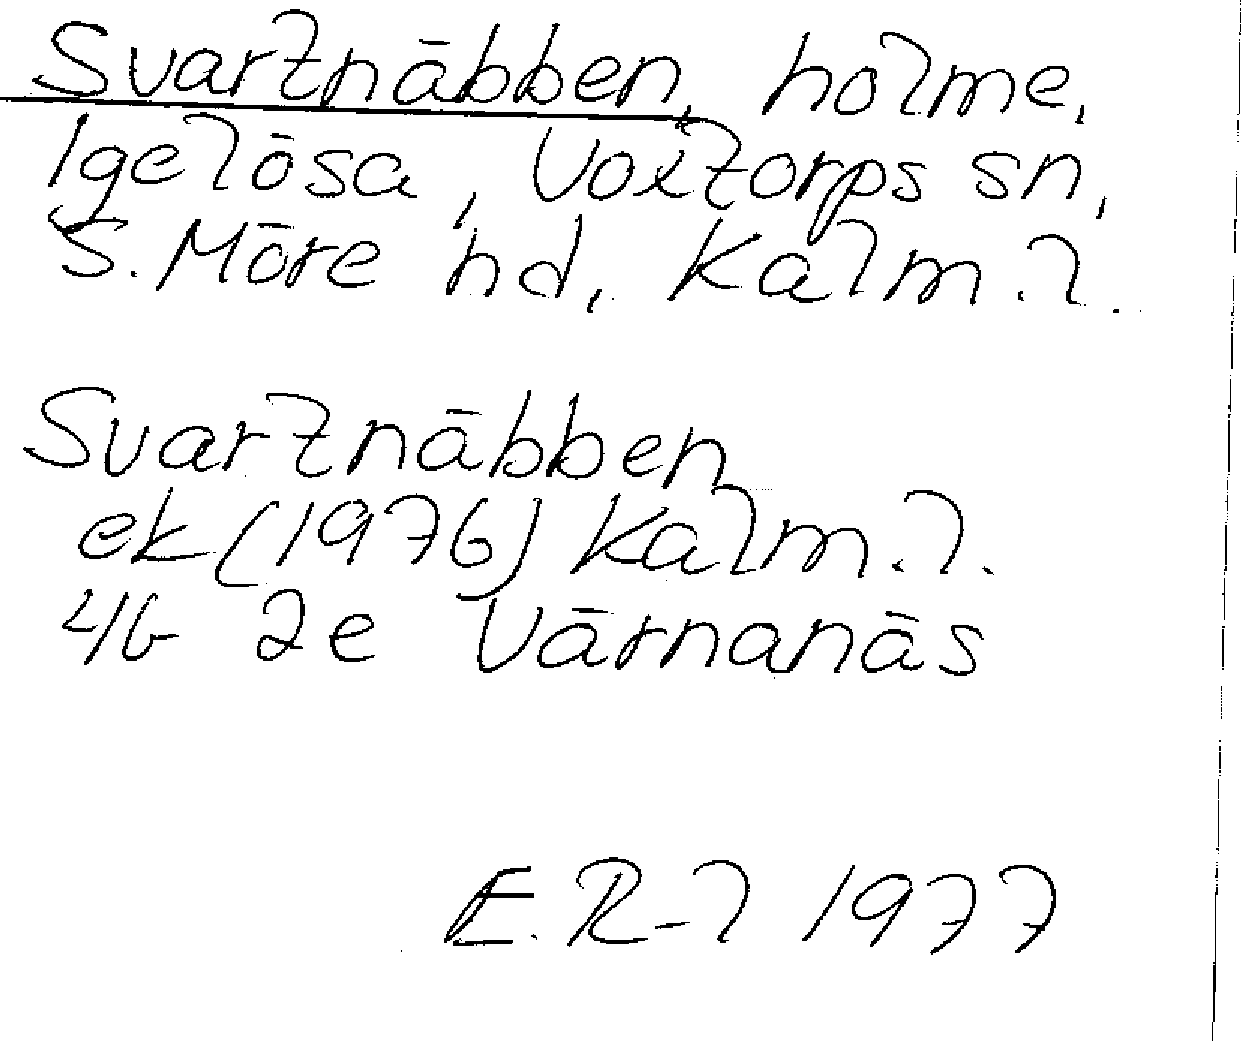 Svartnäbben, holme,
Igelösa, Voxtorps sn,
S. Möre hd, Kalm. l.
Svartnäbben
ek (1976) Kalm. l.
4G 2e Värnanäs
E. R-l 1977